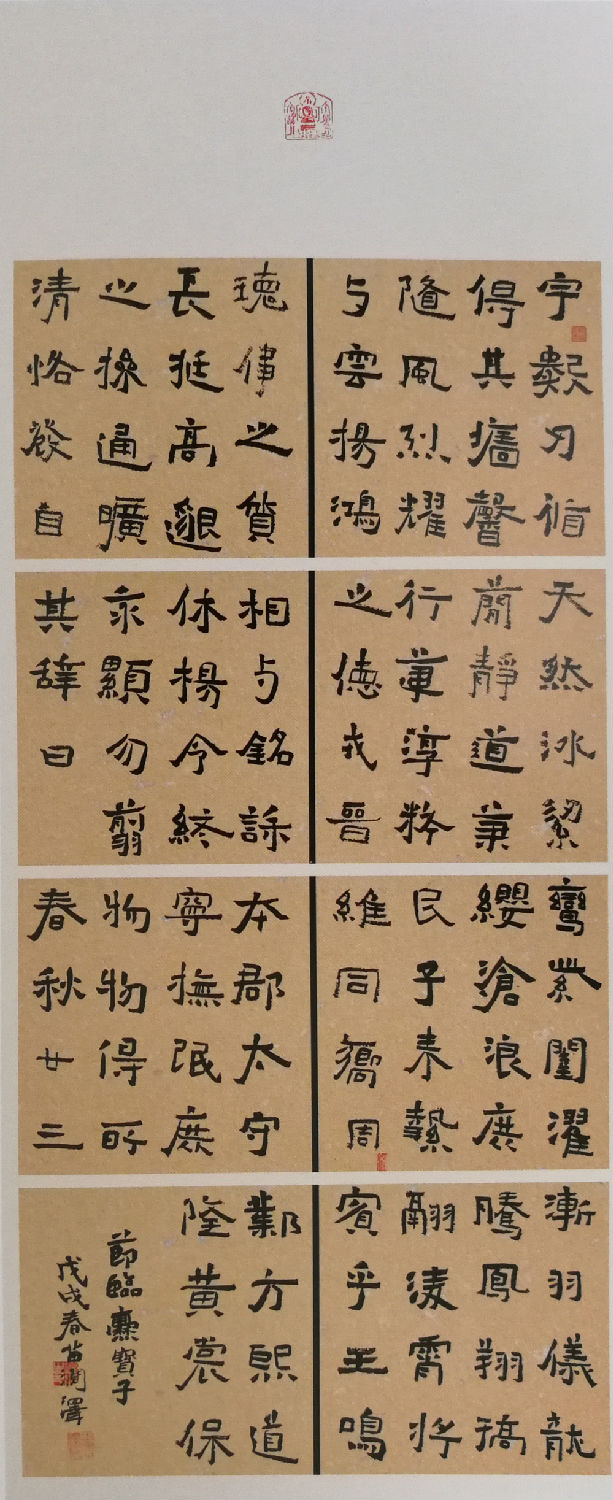 宇數刃循
得其牆馨
隨風烈耀
与雲揚鴻
瓌偉之質
長挺高邈
之操通曠
清恪發自
天然冰絜
簡靜道兼
行葦淳粹
之德戎晉
相与銘誄
休揚令終
永顯勿翦
其辭曰
鸞紫闥濯
纓滄浪庶
民子来縶
維同嚮周
本郡太守
寧撫氓庶
物物得所
春秋廿三
漸羽儀龍
騰鳳翔矯
翮淩霄將
賓乎王鳴
鄴方熙道
隆黄裳保
節臨爨寶子
戊戌春苗潤澤